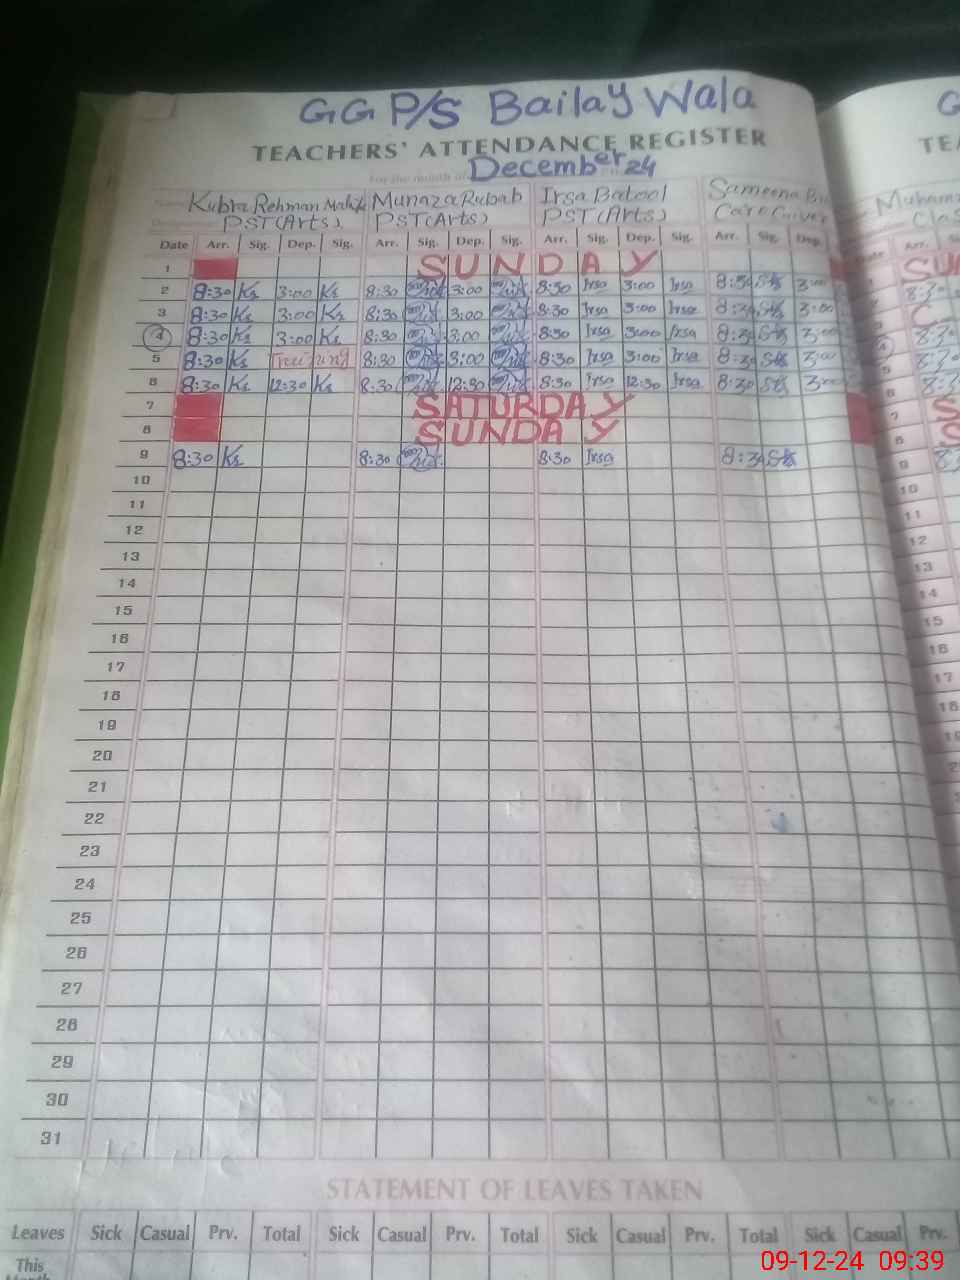 GGP/S Bailay Wala
TEACHERS' ATTENDANCE REGISTER
For the month of December 24
Kubra Rehman Malik Munaza Rubab Irsa Batool Sameena
PST(Arts) PST(Arts) PST(Arts) Care Giver
Date Arr. Sig. Dep. Sig. Arr. Sig. Dep. Sig. Arr. Sig. Dep. Sig. Arr. Sig. Dep.
1 SUNDAY
2 8:30 Ks 3:00 Ks 8:30 3:00 8:30 Irsa 3:00 Irsa 8:30 3:00
3 8:30 Ks 3:00 Ks 8:30 3:00 8:30 Irsa 3:00 Irsa 8:30 3:00
4 8:30 Ks 3:00 Ks 8:30 3:00 8:30 Irsa 3:00 Irsa 8:30 3:00
5 8:30 Ks 8:30 3:00 8:30 Irsa 3:00 Irsa 8:30 3:00
6 8:30 Ks 12:30 Ks 8:30 12:30 8:30 Irsa 12:30 Irsa 8:30
7 SATURDAY
8 SUNDAY
9 8:30 Ks 8:30 8:30 Irsa 8:30
10
11
12
13
14
15
16
17
18
19
20
21
22
23
24
25
26
27
28
29
30
31
STATEMENT OF LEAVES TAKEN
Leaves Sick Casual Prv. Total Sick Casual Prv. Total Sick Casual Prv. Total Sick Casual Prv.
This
09-12-24 09:39